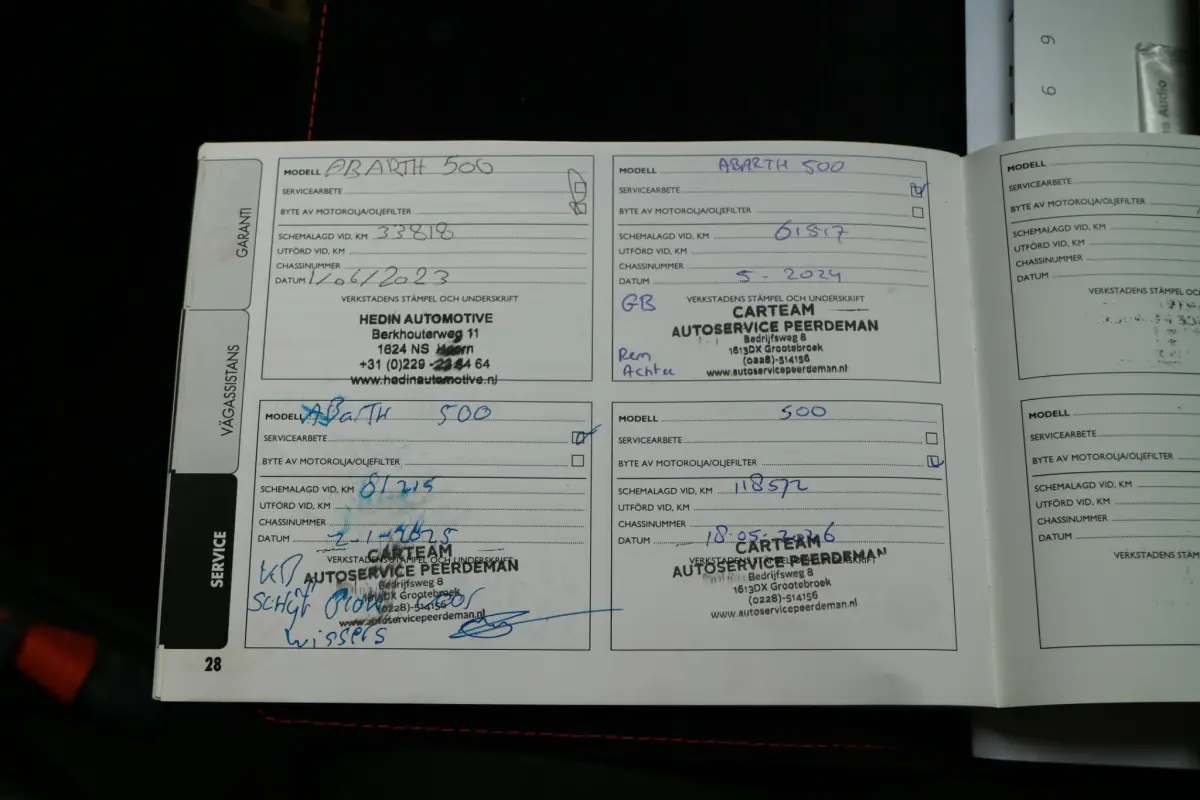 GARANTI
VÄGASSISTANS
SERVICE
28
MODELL ABARTH 500
SERVICEARBETE
BYTE AV MOTOROLJA/OLJEFILTER
SCHEMALAGD VID, KM 33818
UTFÖRD VID, KM
CHASSINUMMER
DATUM 1/06/2023
VERKSTADENS STÄMPEL OCH UNDERSKRIFT
HEDIN AUTOMOTIVE
Berkhouterweg 11
1624 NS Hoorn
+31 (0)229 - 64
www.hedinautomotive.nl
MODELL ABARTH 500
SERVICEARBETE
BYTE AV MOTOROLJA/OLJEFILTER
SCHEMALAGD VID, KM 61517
UTFÖRD VID, KM
CHASSINUMMER
DATUM 5 - 2024
VERKSTADENS STÄMPEL OCH UNDERSKRIFT
GB
CARTEAM
AUTOSERVICE PEERDEMAN
Bedrijfsweg 8
1613DX Grootebroek
(0228)-514156
www.autoservicepeerdeman.nl
Rem
Achter
MODELL ABarTH 500
SERVICEARBETE
BYTE AV MOTOROLJA/OLJEFILTER
SCHEMALAGD VID, KM 81215
UTFÖRD VID, KM
CHASSINUMMER
DATUM 2-1-2025
VERKSTADENS STÄMPEL OCH UNDERSKRIFT
CARTEAM
AUTOSERVICE PEERDEMAN
Bedrijfsweg 8
1613DX Grootebroek
(0228)-514156
www.autoservicepeerdeman.nl
wissers
MODELL 500
SERVICEARBETE
BYTE AV MOTOROLJA/OLJEFILTER
SCHEMALAGD VID, KM 118572
UTFÖRD VID, KM
CHASSINUMMER
DATUM 18-05-2026
VERKSTADENS STÄMPEL OCH UNDERSKRIFT
CARTEAM
AUTOSERVICE PEERDEMAN
Bedrijfsweg 8
1613DX Grootebroek
(0228)-514156
www.autoservicepeerdeman.nl
MODELL
SERVICEARBETE
BYTE AV MOTOROLJA/OLJEFILTER
SCHEMALAGD VID, KM
UTFÖRD VID, KM
CHASSINUMMER
DATUM
VERKSTADENS STÄMPEL OC
MODELL
SERVICEARBETE
BYTE AV MOTOROLJA/OLJEFILTER
SCHEMALAGD VID, KM
UTFÖRD VID, KM
CHASSINUMMER
DATUM
VERKSTADENS STÄM
6 9
na Audio